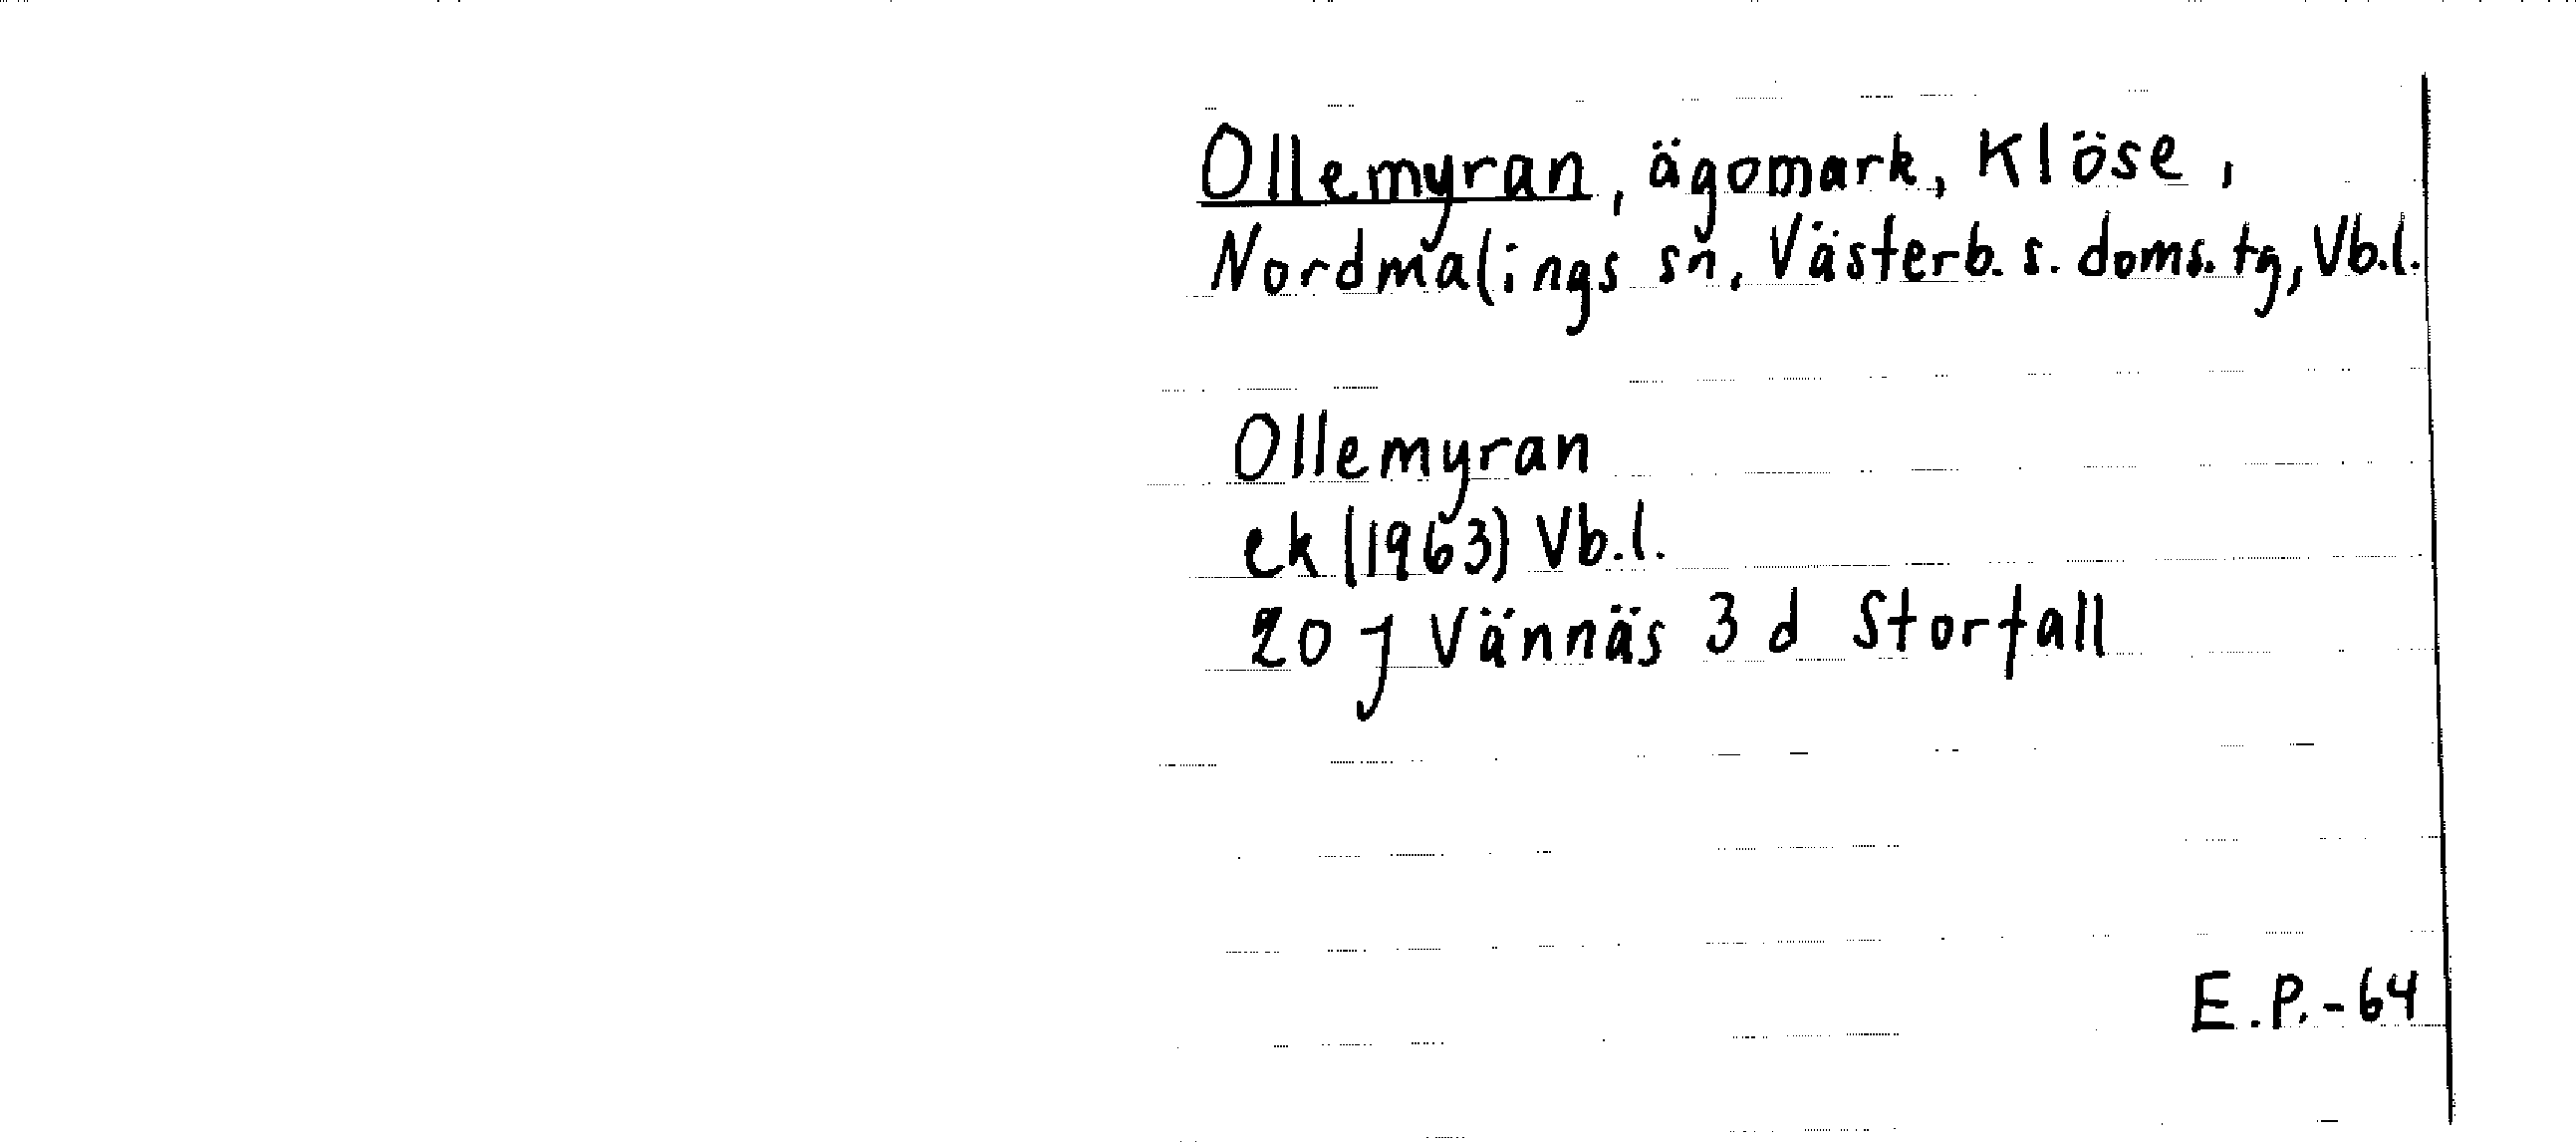 Ollemyran, ägomark, Klöse,
Nordmalings sn, Västerb. s. doms. tg, Vb.l.
Ollemyran
ek (1963) Vb.l.
20 J Vännäs 3 d Storfall
E.P.-64